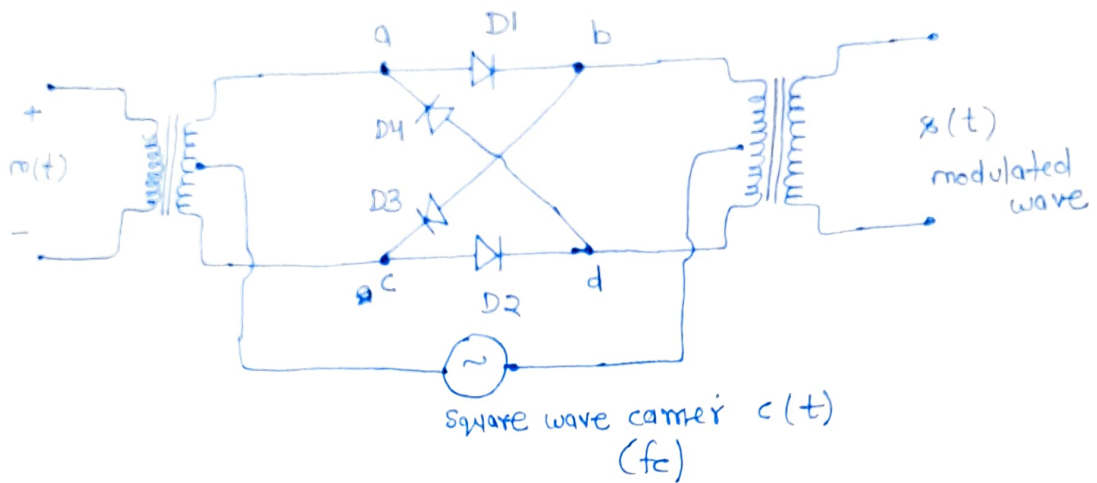 D1
a
b
+
m(t)
-
D4
D3
s(t)
modulated
wave
c
d
D2
~
square wave carrier c(t)
(fc)